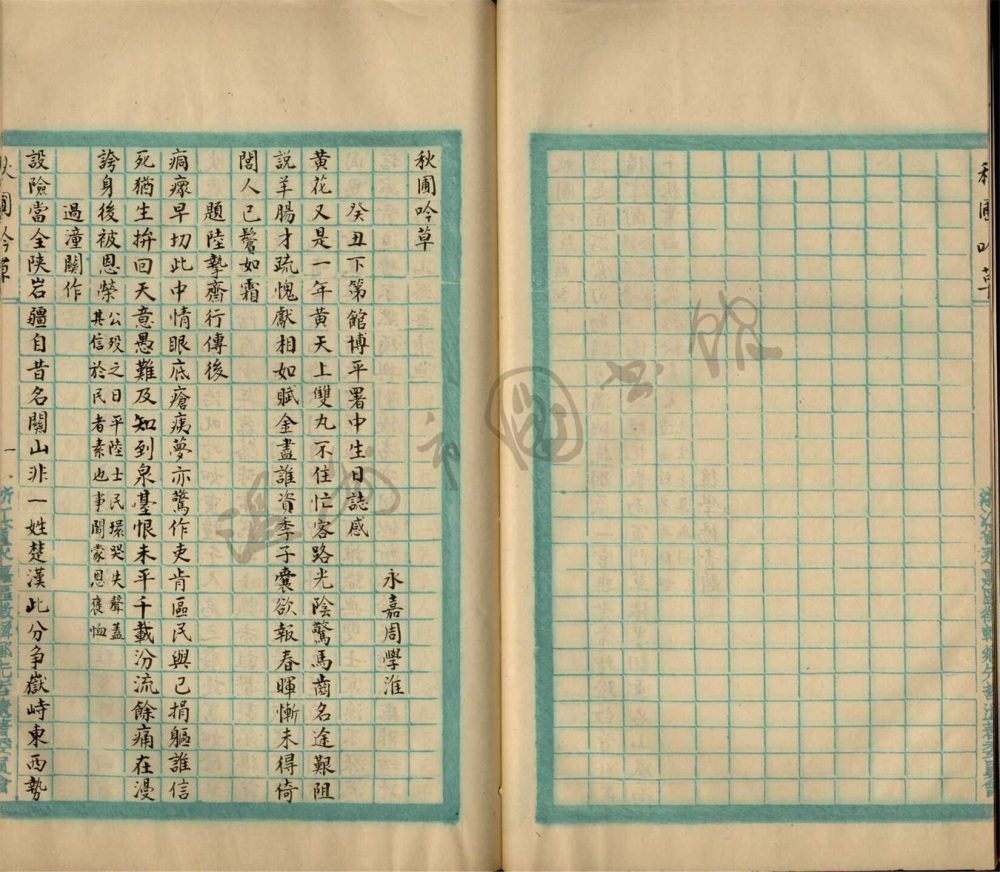 秋圃吟草
秋圃吟草
永嘉周學淮
癸丑下第館博平署中生日誌感
黃花又是一年黃天上雙丸不住忙客路光陰驚馬齒名途艱阻
說羊腸才疏愧獻相如賦金盡誰資季子囊欲報春暉慚未得倚
閭人已鬢如霜
題陸摯齋行傳後
痌瘝早切此中情眼底瘡痍夢亦驚作吏肯區民與己捐軀誰信
死猶生拚回天意愚難及知到泉臺恨未平千載汾流餘痛在漫
誇身後被恩榮公歿之日平陸士民環哭失聲蓋
其信於民者素也事聞蒙恩褒恤
過潼關作
設險當全陝岩疆自昔名關山非一姓楚漢此分爭嶽峙東西勢
秋圃吟草
一
溫州市圖書館